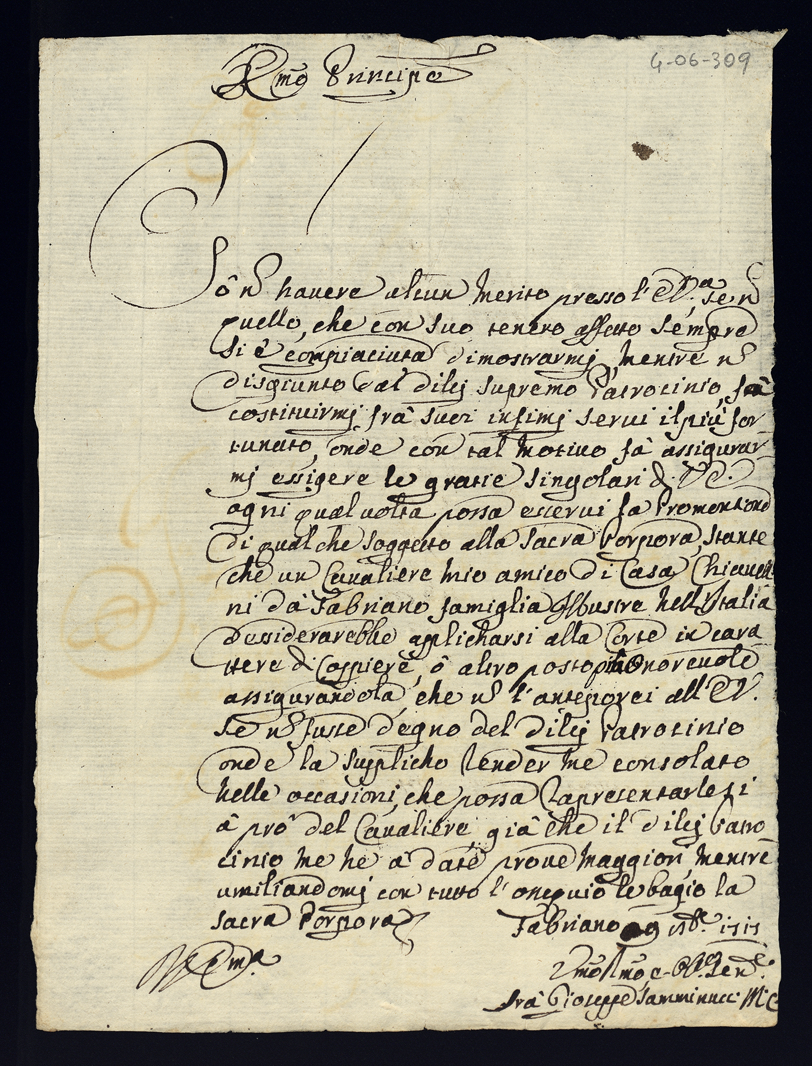 4-06-309
Emo Principe
Sò n̄ havere alcun merito presso l'E.V.ra se n̄
quello, che con suo tenero affetto sempre
si è compiaciuta dimostrarmj, mentre n̄
disgiunto dal dilej supremo Patrocinio, fà
costituirmj frà suoi infimj servi il più for-
tunato, onde con tal motivo fà assigurar-
mj essigere le gratie singolari di V.E.
ogni qual volta possa esservi la Promentione
di qualche soggetto alla Sacra Porpora, stante
che un Cavaliere mio amico di Casa Chiavel-
ni dà Fabriano famiglia Illustre nell'Italia
dessiderarebbe applicharsi alla Corte in cara-
ttere di Coppiere, ò altro posto più honorevole
assigurandola, che n̄ l'anteporei all'E.V.
se n̄ fusse degno del dilej Patrocinio
onde la supplicho render me consolato
nelle occasioni, che possa rapresentarlesi
à prò del Cavaliere già che il dilej Patro-
cinio me hè à date prove maggiori, mentre
umiliandomj con tutto l'ossequio le bagio la
Sacra Porpora
Fabriano 9 1717
V. Ema
Frà Gioseppe Samminucci M.C.